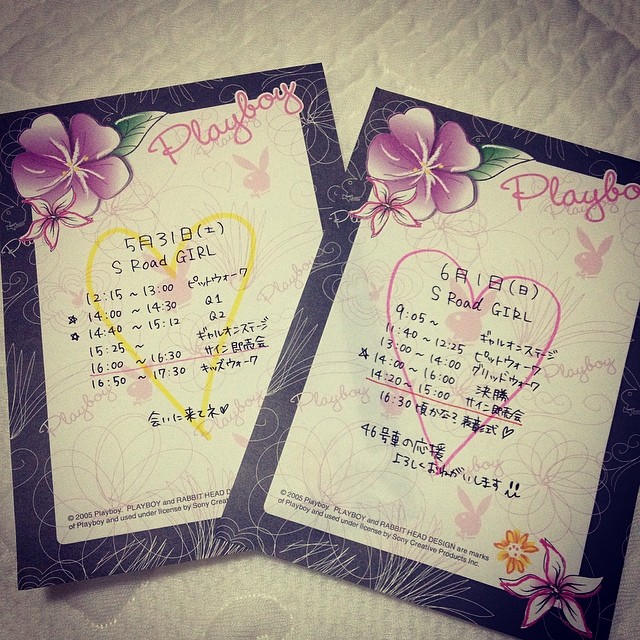 Playboy
5月31日(土)
S Road GIRL
12:15 ~ 13:00 ピットウォーク
☆ 14:00 ~ 14:30 Q1
☆ 14:40 ~ 15:12 Q2
15:25 ~ ギャルオンステージ
16:00 ~ 16:30 サイン即売会
16:50 ~ 17:30 キッズウォーク
会いに来てネ♡
© 2005 Playboy. PLAYBOY and RABBIT HEAD D
of Playboy and used under license by Sony Crea
Playbo
6月1日(日)
S Road GIRL
9:05 ~ ギャルオンステージ
11:40 ~ 12:25 ピットウォーク
13:00 ~ 14:00 グリッドウォーク
☆ 14:00 ~ 16:00 決勝
14:20 ~ 15:00 サイン即売会
16:30 頃かな? 表彰式♡
46号車の応援
よろしくおねがいします
© 2005 Playboy. PLAYBOY and RABBIT HEAD DESIGN are marks
of Playboy and used under license by Sony Creative Products Inc.